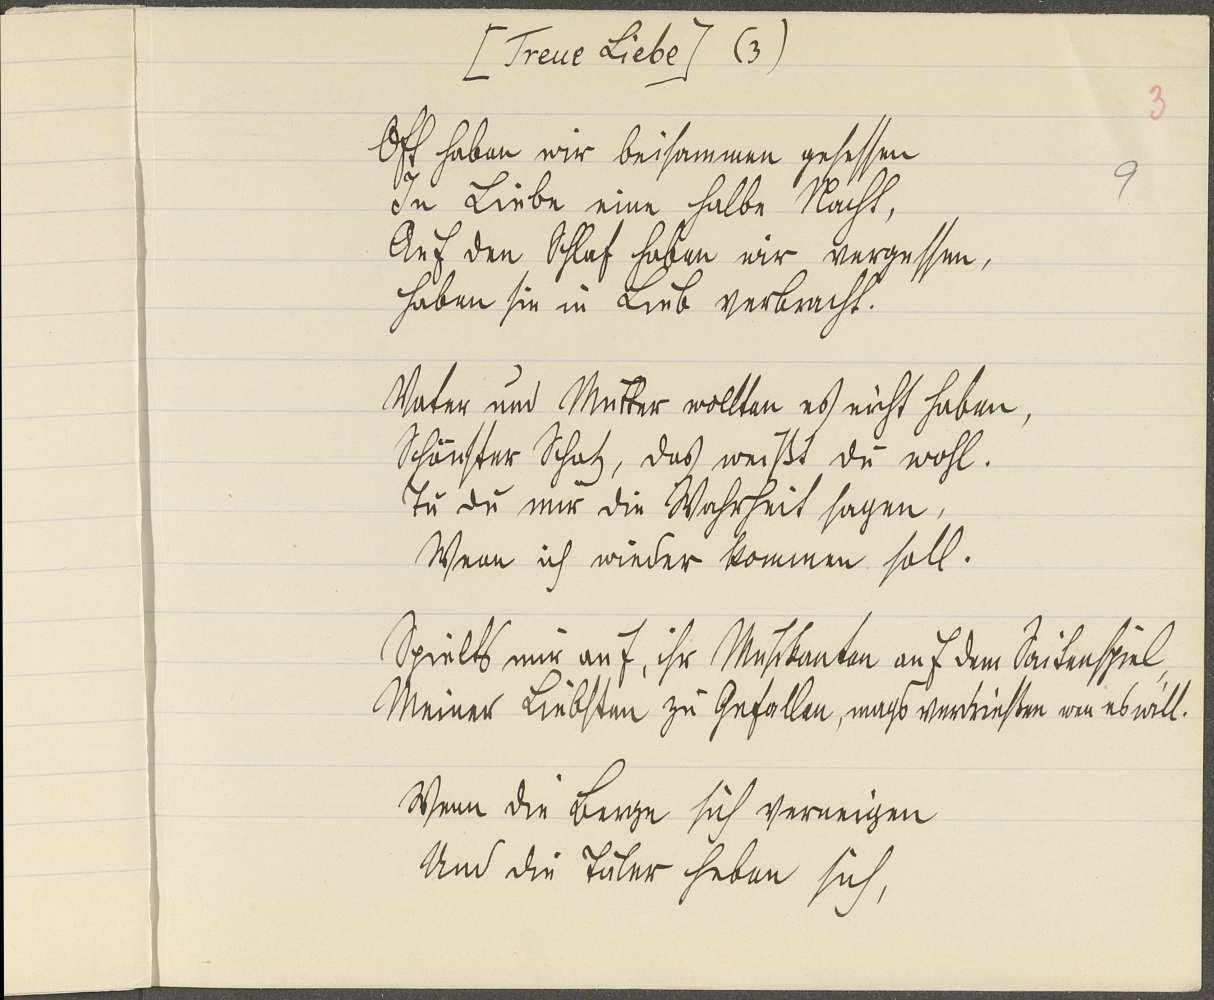 [Treue Liebe] (3)
3
9
Oft haben wir beisammen gesessen
In Liebe eine halbe Nacht,
Auf den Schlaf haben wir vergessen,
Haben sie in Lieb verbracht.
Vater und Mutter wollten es nicht haben,
Schönster Schatz, das weißt du wohl.
Tu du mir die Wahrheit sagen,
Wenn ich wieder kommen soll.
Spielts mir auf, ihr Musikanten auf dem Saitenspiel,
Meiner Liebsten zu Gefallen, mags verdrießen wen es will.
Wenn die Berge sich verneigen
Und die Täler heben sich,